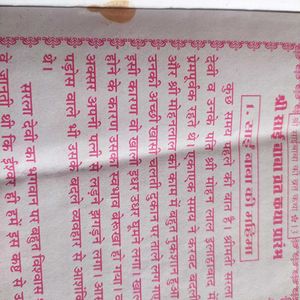 श्री साईं बाबा व्रत कथा प्रारंभ
1. साईं बाबा की महिमा
कुछ समय पहले की बात है। श्रीमती सरला
देवी व उनके पति श्री मोहन लाल इलाहाबाद
प्रेमपूर्वक रहते थे। एकाएक समय ने करवट बदली
और श्री मोहनलाल के काम में बहुत नुकसान हुआ
उनकी अच्छी खासी चलती दुकान पर ताला लग गया
इसी कारण उदास घर
होने के कारण उनका स्वभाव हो गया
अक्सर अपनी पत्नी से लड़ने झगड़ने लगे।
पड़ोस वाले भी उनके बदले व्यवहार से
थे।
सरला देवी को भगवान पर बहुत विश्वास
वे जानती थी कि ईश्वर ही हमें इस कष्ट से